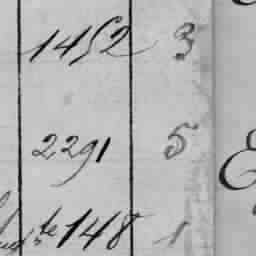 1452 3
2291 5
148 1